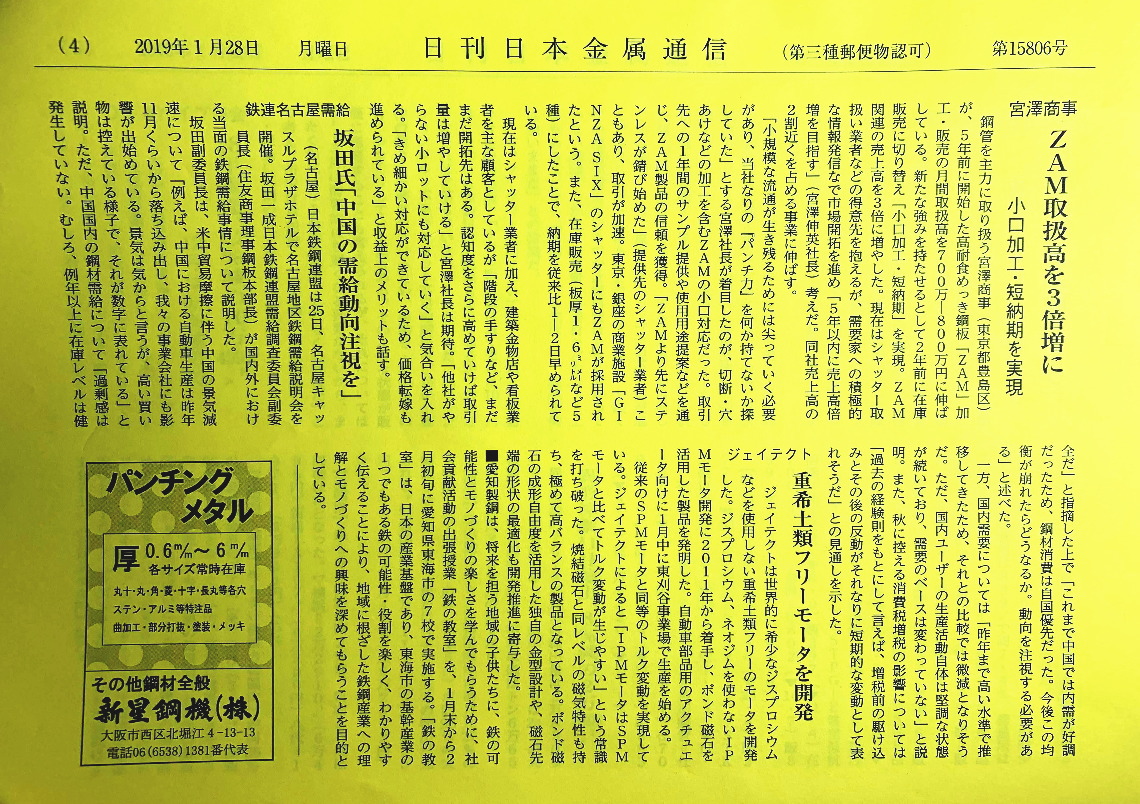 (4) 2019年1月28日 月曜日 日刊日本金属通信 (第三種郵便物認可) 第15806号
宮澤商事
ZAM取扱高を3倍増に
小口加工・短納期を実現
鋼管を主力に取り扱う宮澤商事(東京都豊島区)
が、5年前に開始した高耐食めっき鋼板「ZAM」加
工・販売の月間取扱高を700万―800万円に伸ば
している。新たな強みを持たせるとして2年前に在庫
販売に切り替え「小口加工・短納期」を実現。ZAM
関連の売上高を3倍に増やした。現在はシャッター取
扱い業者などの得意先を抱えるが、需要家への積極的
な情報発信などで市場開拓を進め「5年以内に売上高倍
増を目指す」(宮澤伸英社長)考えだ。同社売上高の
2割近くを占める事業に伸ばす。
「小規模な流通が生き残るためには尖っていく必要
があり、当社なりの『パンチ力』を何か持てないか探
していた」とする宮澤社長が着目したのが、切断・穴
あけなどの加工を含むZAMの小口対応だった。取引
先への1年間のサンプル提供や使用用途提案などを通
じ、ZAM製品の信頼を獲得。「ZAMより先にステ
ンレスが錆び始めた」(提供先のシャッター業者)こ
ともあり、取引が加速。東京・銀座の商業施設「GI
NZA SIX」のシャッターにもZAMが採用され
たという。また、在庫販売(板厚1・6㍉など5
種)にしたことで、納期を従来比1―2日早められて
いる。
現在はシャッター業者に加え、建築金物店や看板業
者を主な顧客としているが「階段の手すりなど、まだ
まだ開拓先はある。認知度をさらに高めていけば取引
量は増やしていける」と宮澤社長は期待。「他社がや
らない小ロットにも対応していく」と気合いを入れ
る。「きめ細かい対応ができているため、価格転嫁も
進められている」と収益上のメリットも話す。
鉄連名古屋需給
坂田氏「中国の需給動向注視を」
(名古屋)日本鉄鋼連盟は25日、名古屋キャッ
スルプラザホテルで名古屋地区鉄鋼需給説明会を
開催。坂田一成日本鉄鋼連盟需給調査委員会副委
員長(住友商事理事鋼板本部長)が国内外におけ
る当面の鉄鋼需給事情について説明した。
坂田副委員長は、米中貿易摩擦に伴う中国の景気減
速について「例えば、中国における自動車生産は昨年
11月くらいから落ち込み出し、我々の事業会社にも影
響が出始めている。景気は気からと言うが、高い買い
物は控えている様子で、それが数字に表れている」と
説明。ただ、中国国内の鋼材需給について「過剰感は
発生していない。むしろ、例年以上に在庫レベルは健
全だ」と指摘した上で「これまで中国では内需が好調
だったため、鋼材消費は自国優先だった。今後この均
衡が崩れたらどうなるか。動向を注視する必要があ
る」と述べた。
一方、国内需要については「昨年まで高い水準で推
移してきたため、それとの比較では微減となりそう
だ。ただ、国内ユーザーの生産活動自体は堅調な状態
が続いており、需要のベースは変わっていない」と説
明。また、秋に控える消費税増税の影響については
「過去の経験則をもとにして言えば、増税前の駆け込
みとその後の反動がそれなりに短期的な変動として表
れそうだ」との見通しを示した。
ジェイテクト
重希土類フリーモータを開発
ジェイテクトは世界的に希少なジスプロシウム
などを使用しない重希土類フリーのモータを開発
した。ジスプロシウム、ネオジムを使わないIP
Mモータ開発に2011年から着手し、ボンド磁石を
活用した製品を発明した。自動車部品用のアクチュエ
ータ向けに1月中に東刈谷事業場で生産を始める。
従来のSPMモータと同等のトルク変動を実現して
いる。ジェイテクトによると「IPMモータはSPM
モータと比べてトルク変動が生じやすい」という常識
を打ち破った。焼結磁石と同レベルの磁気特性も持
ち、極めて高バランスの製品となっている。ボンド磁
石の成形自由度を活用した独自の金型設計や、磁石先
端の形状の最適化も開発推進に寄与した。
■愛知製鋼は、将来を担う地域の子供たちに、鉄の可
能性とモノづくりの楽しさを学んでもらうために、社
会貢献活動の出張授業「鉄の教室」を、1月末から2
月初旬に愛知県東海市の7校で実施する。「鉄の教
室」は、日本の産業基盤であり、東海市の基幹産業の
1つでもある鉄の可能性・役割を楽しく、わかりやす
く伝えることにより、地域に根ざした鉄鋼産業への理
解とモノづくりへの興味を深めてもらうことを目的と
している。
パンチング
メタル
厚 0.6m/m〜6m/m
各サイズ常時在庫
丸十・丸・角・菱・十字・長丸等各穴
ステン・アルミ等特注品
曲加工・部分打抜・塗装・メッキ
その他鋼材全般
新星鋼機(株)
大阪市西区北堀江4-13-13
電話06(6538)1381番代表